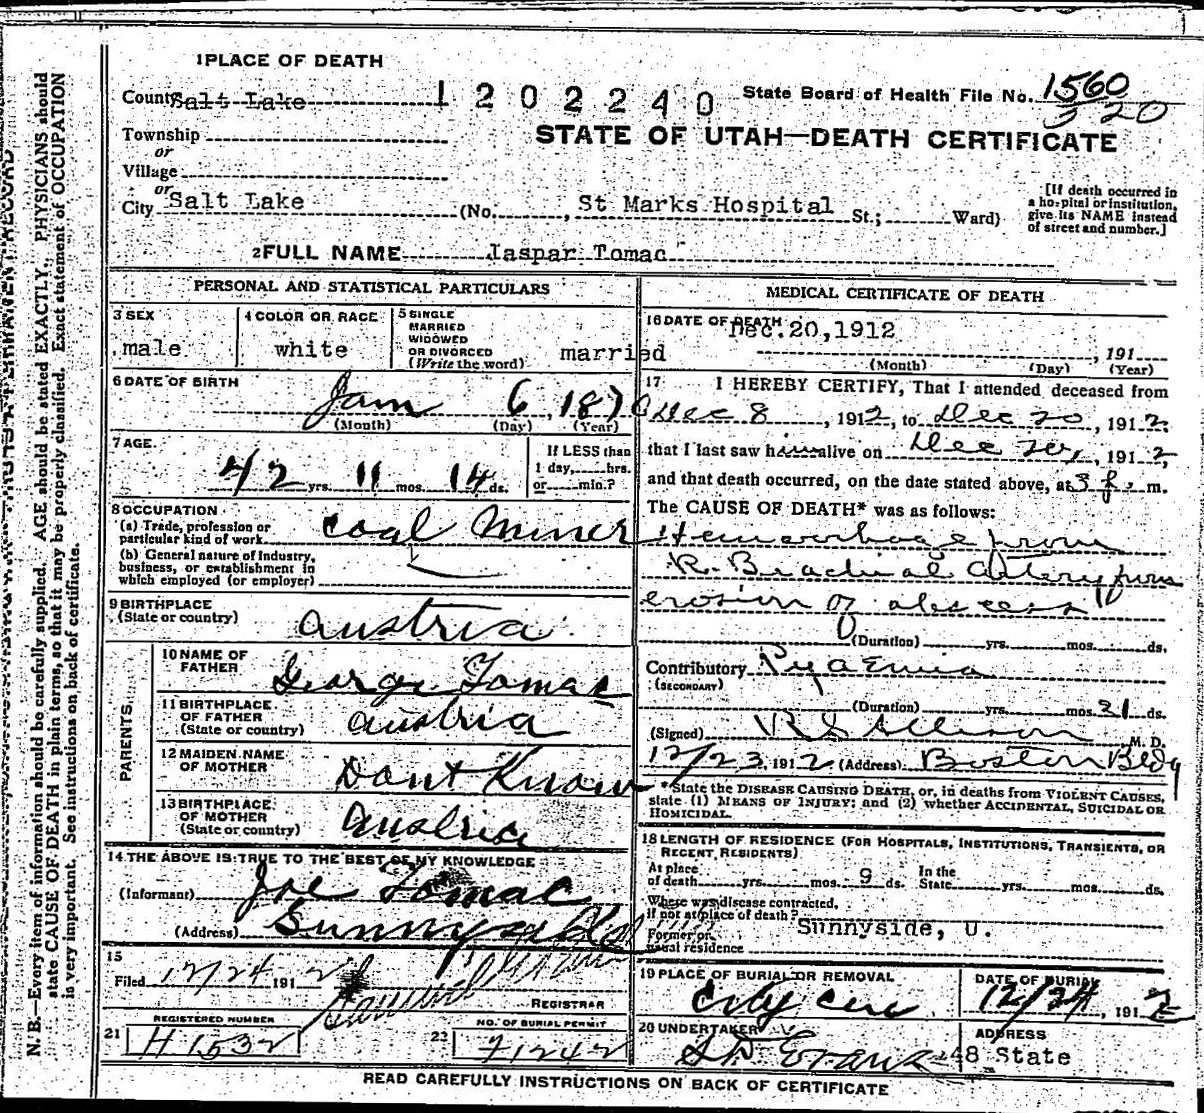 1 PLACE OF DEATH
County Salt Lake
1202240
State Board of Health File No. 1560
320
Township
or
Village
or
City Salt Lake
STATE OF UTAH—DEATH CERTIFICATE
(No. , St Marks Hospital St.; Ward)
[If death occurred in a hospital or institution, give its NAME instead of street and number.]
2 FULL NAME Jaspar Tomac
PERSONAL AND STATISTICAL PARTICULARS
3 SEX
male
4 COLOR OR RACE
white
5 SINGLE
MARRIED
WIDOWED
OR DIVORCED
(Write the word)
married
6 DATE OF BIRTH
Jan 6, 1870
(Month) (Day) (Year)
7 AGE
42 yrs. 11 mos. 14 ds.
If LESS than
1 day, hrs.
or min.?
8 OCCUPATION
(a) Trade, profession or
particular kind of work
coal Miner
(b) General nature of industry,
business, or establishment in
which employed (or employer)
9 BIRTHPLACE
(State or country)
Austria
PARENTS
10 NAME OF
FATHER
George Tomac
11 BIRTHPLACE
OF FATHER
(State or country)
Austria
12 MAIDEN NAME
OF MOTHER
Dont Know
13 BIRTHPLACE
OF MOTHER
(State or country)
Austria
14 THE ABOVE IS TRUE TO THE BEST OF MY KNOWLEDGE
(Informant) Joe Tomac
(Address) Sunnyside
15
Filed 12/24 1912
REGISTRAR
21
REGISTERED NUMBER
H 1532
22
NO. OF BURIAL PERMIT
71242
MEDICAL CERTIFICATE OF DEATH
16 DATE OF DEATH
Dec. 20, 1912
, 191
(Month) (Day) (Year)
17 I HEREBY CERTIFY, That I attended deceased from
Dec 8, 1912, to Dec 20, 1912
that I last saw him alive on Dec 20, 1912,
and that death occurred, on the date stated above, at 3 P. m.
The CAUSE OF DEATH* was as follows:
Hemorrhage from
R. Brachial artery from
erosion of abscess
(Duration) yrs. mos. ds.
Contributory Pyaemia
(SECONDARY)
(Duration) yrs. mos. 21 ds.
(Signed) R S Allison M. D.
12/23, 1912 (Address) Boston Bldg
*State the DISEASE CAUSING DEATH, or, in deaths from VIOLENT CAUSES, state (1) MEANS OF INJURY; and (2) whether ACCIDENTAL, SUICIDAL OR HOMICIDAL.
18 LENGTH OF RESIDENCE (FOR HOSPITALS, INSTITUTIONS, TRANSIENTS, OR RECENT RESIDENTS)
At place
of death yrs. mos. 9 ds.
In the
State yrs. mos. ds.
Where was disease contracted,
if not at place of death?
Former or
usual residence
Sunnyside, U.
19 PLACE OF BURIAL OR REMOVAL
City Cem
DATE OF BURIAL
12/24, 1912
20 UNDERTAKER
S D Evans
ADDRESS
48 State
READ CAREFULLY INSTRUCTIONS ON BACK OF CERTIFICATE
N. B.—Every item of information should be carefully supplied. AGE should be stated EXACTLY. PHYSICIANS should
state CAUSE OF DEATH in plain terms, so that it may be properly classified. Exact statement of OCCUPATION
is very important. See instructions on back of certificate.